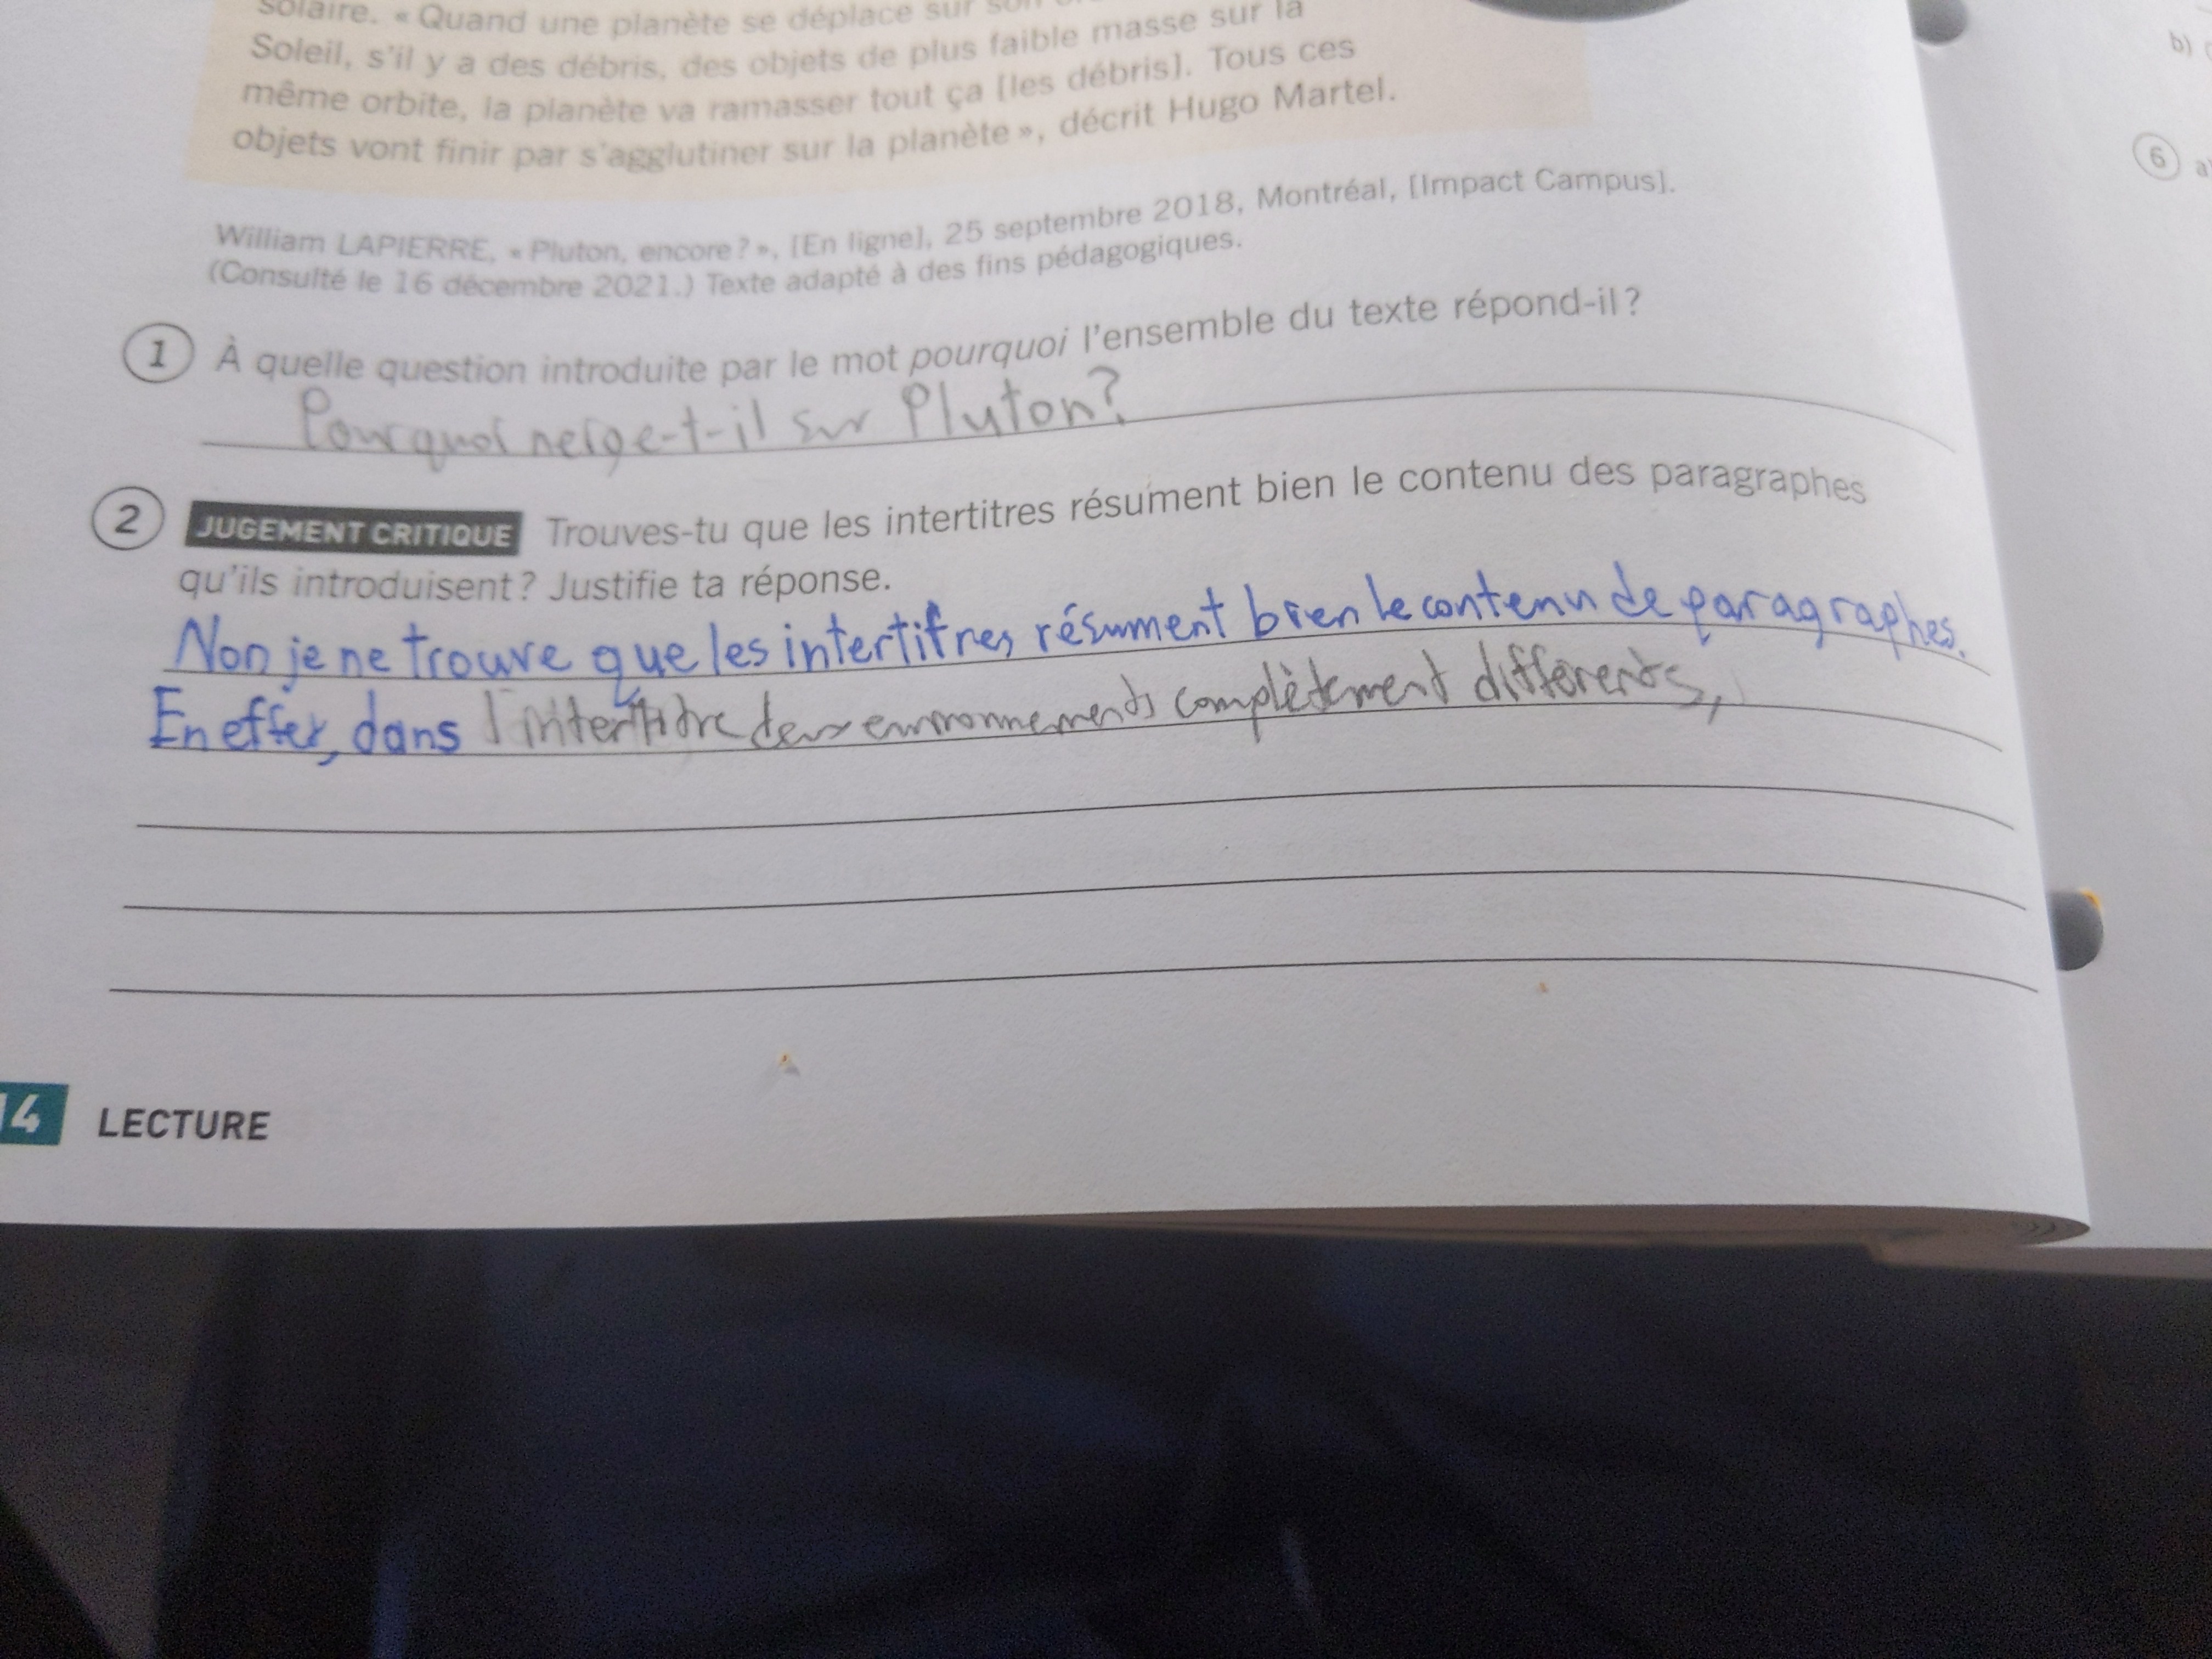 solaire. « Quand une planète se déplace sur
Soleil, s'il y a des débris, des objets de plus faible masse sur la
même orbite, la planète va ramasser tout ça [les débris]. Tous ces
objets vont finir par s'agglutiner sur la planète », décrit Hugo Martel.
William LAPIERRE, « Pluton, encore ? », [En ligne], 25 septembre 2018, Montréal, [Impact Campus].
(Consulté le 16 décembre 2021.) Texte adapté à des fins pédagogiques.
1 À quelle question introduite par le mot pourquoi l'ensemble du texte répond-il ?
Pourquoi neige-t-il sur Pluton?
2 JUGEMENT CRITIQUE Trouves-tu que les intertitres résument bien le contenu des paragraphes
qu'ils introduisent ? Justifie ta réponse.
Non je ne trouve que les intertitres résument bien le contenu de paragraphes.
En effet, dans l'intertitre deux environnements complètement différents,
14 LECTURE
b)
6 a